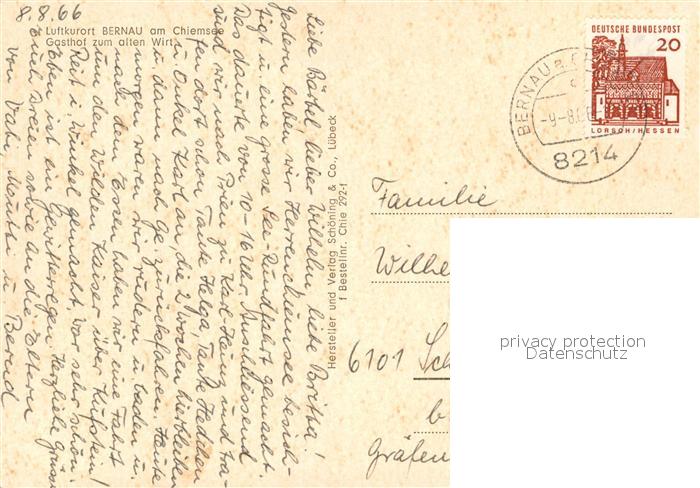 8.8.66
Luftkurort BERNAU am Chiemsee
Gasthof zum alten Wirt
Liebe Bärbel, lieber Wilhelm, liebe Britta!
Gestern haben wir Herrenchiemsee besich-
tigt u. eine grosse See-Rundfahrt gemacht.
Das dauerte von 10-16 Uhr. Anschliessend
sind wir nach Prien zu Karl-Heinz und
dort schon Tante Helga, Tante
u. Onkel Karl an, die 2 Wochen hierbleiben
u. dann nach Ge. zurückfahren. Heute
morgen waren wir rudern u. baden u.
nach dem Essen haben wir eine Fahrt
um den Wilden Kaiser über Kufstein,
Reit i. Winkel gemacht. War sehr schön.
Eben ist ein Gewitterregen. Herzliche Grüsse
Euch Dreien sowie an die Eltern
von Vati, Mutti u. Bernd
Hersteller und Verlag Schöning & Co., Lübeck
Bestellnr. Chie 292-f
DEUTSCHE BUNDESPOST
20
LORSCH/HESSEN
BERNAU a.
-9.-8.66
8214
Familie
Wilhe
6101
b
Gräfen
privacy protection
Datenschutz